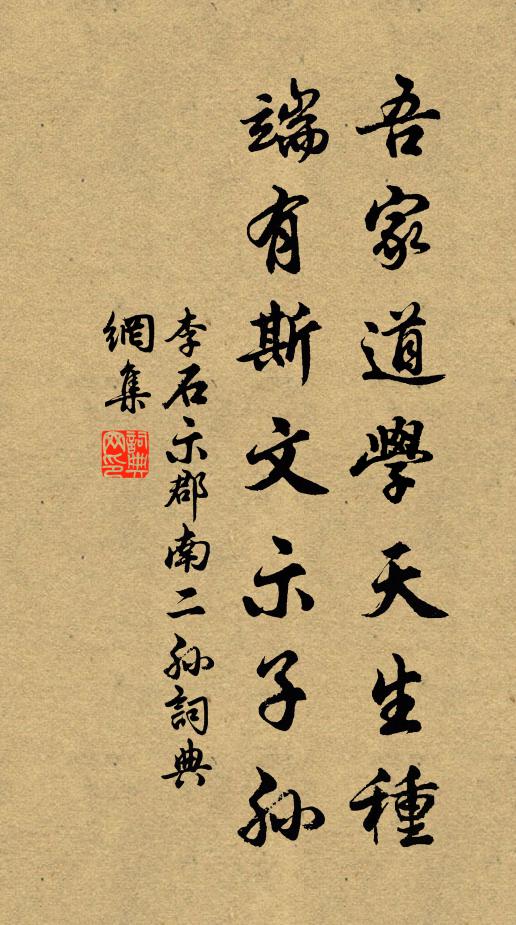 吾家道學天生種
端有斯文示子孫
李石示郡南二孫詞典
網集
詞典
网印